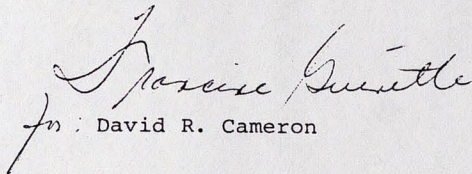 Francine Guenette
for: David R. Cameron